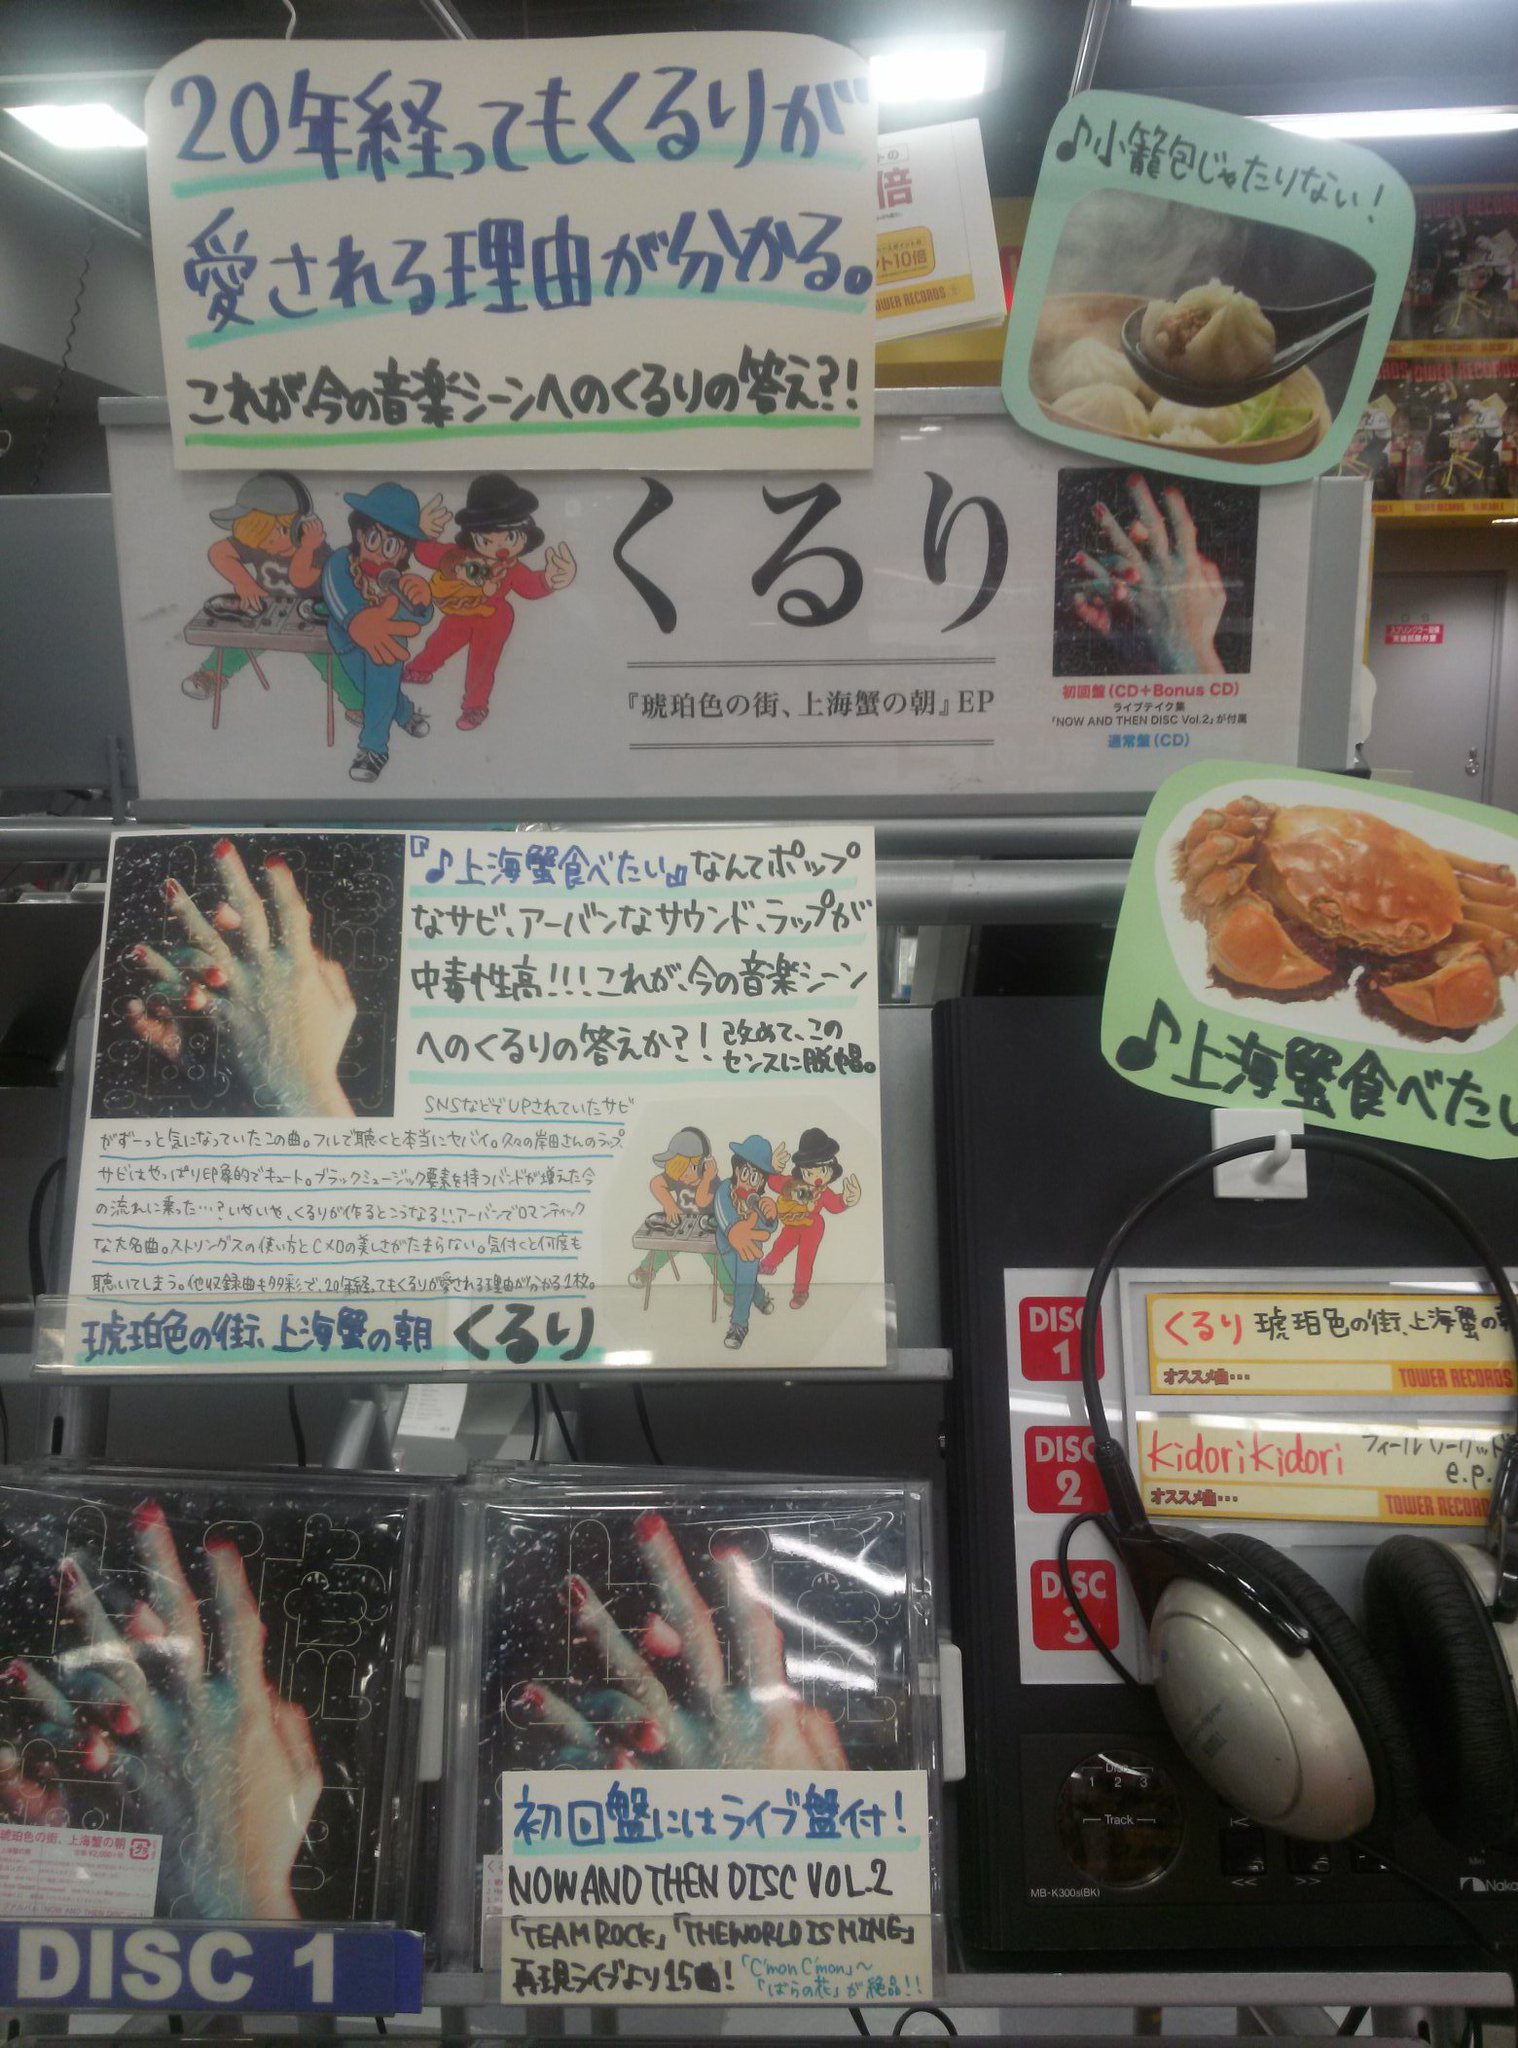 20年経ってもくるりが
愛される理由が分かる。
これが今の音楽シーンへのくるりの答え?!
倍
ト10倍
TOWER RECORDS
♪小籠包じゃたりない!
くるり
『琥珀色の街、上海蟹の朝』EP
初回盤(CD+Bonus CD)
ライブテイク集
「NOW AND THEN DISC Vol.2」が付属
通常盤(CD)
『♪上海蟹食べたい』なんてポップ
なサビ、アーバンなサウンド、ラップが
中毒性高!!!これが、今の音楽シーン
へのくるりの答えか?! 改めて、この
センスに脱帽。
SNSなどでUPされていたサビ
がずーっと気になっていたこの曲。フルで聴くと本当にヤバイ。久々の岸田さんのラップ
サビはやっぱり印象的でキュート。ブラックミュージック要素を持つバンドが増えた今
の流れに乗った…?いやいや、くるりが作るとこうなる!!アーバンでロマンティック
な大名曲。ストリングスの使い方とCメロの美しさがたまらない。気付くと何度も
聴いてしまう。他収録曲も多彩で、20年経ってもくるりが愛される理由が分かる1枚。
琥珀色の街、上海蟹の朝 くるり
♪上海蟹食べたい
DISC 1
くるり 琥珀色の街、上海蟹の朝
オススメ曲…
TOWER RECORDS
DISC 2
kidori kidori フィールソーリッド
e.p.
オススメ曲…
TOWER RECORDS
DISC 3
琥珀色の街、上海蟹の朝
DISC 1
初回盤にはライブ盤付!
NOW AND THEN DISC VOL.2
「TEAM ROCK」「THE WORLD IS MINE」
再現ライブより15曲!「C'mon C'mon」〜
「ばらの花」が絶品!!
Disc
1 2 3
Track
MB-K300s(BK)